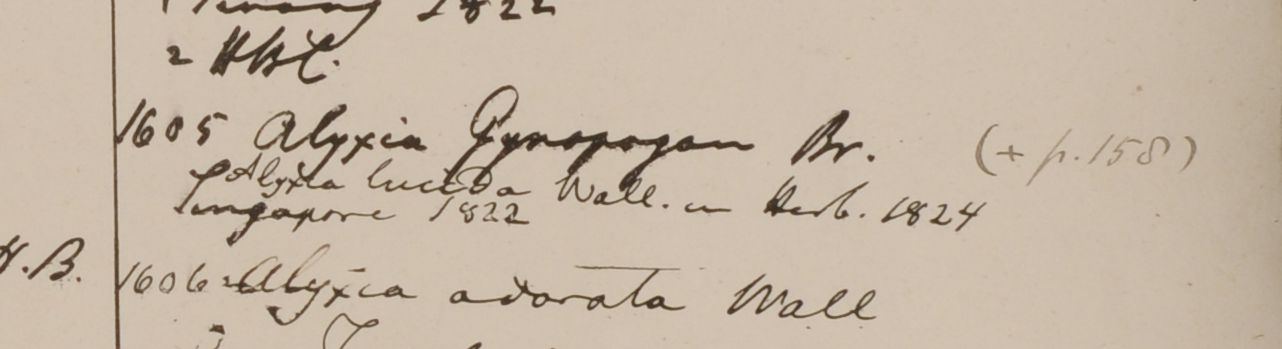 Penang 1822
2 HBC.
1605 Alyxia Gynopogon Br. (+ p. 158)
Alyxia lucida Wall. in Herb. 1824
Singapore 1822
H.B. 1606 Alyxia adorata Wall